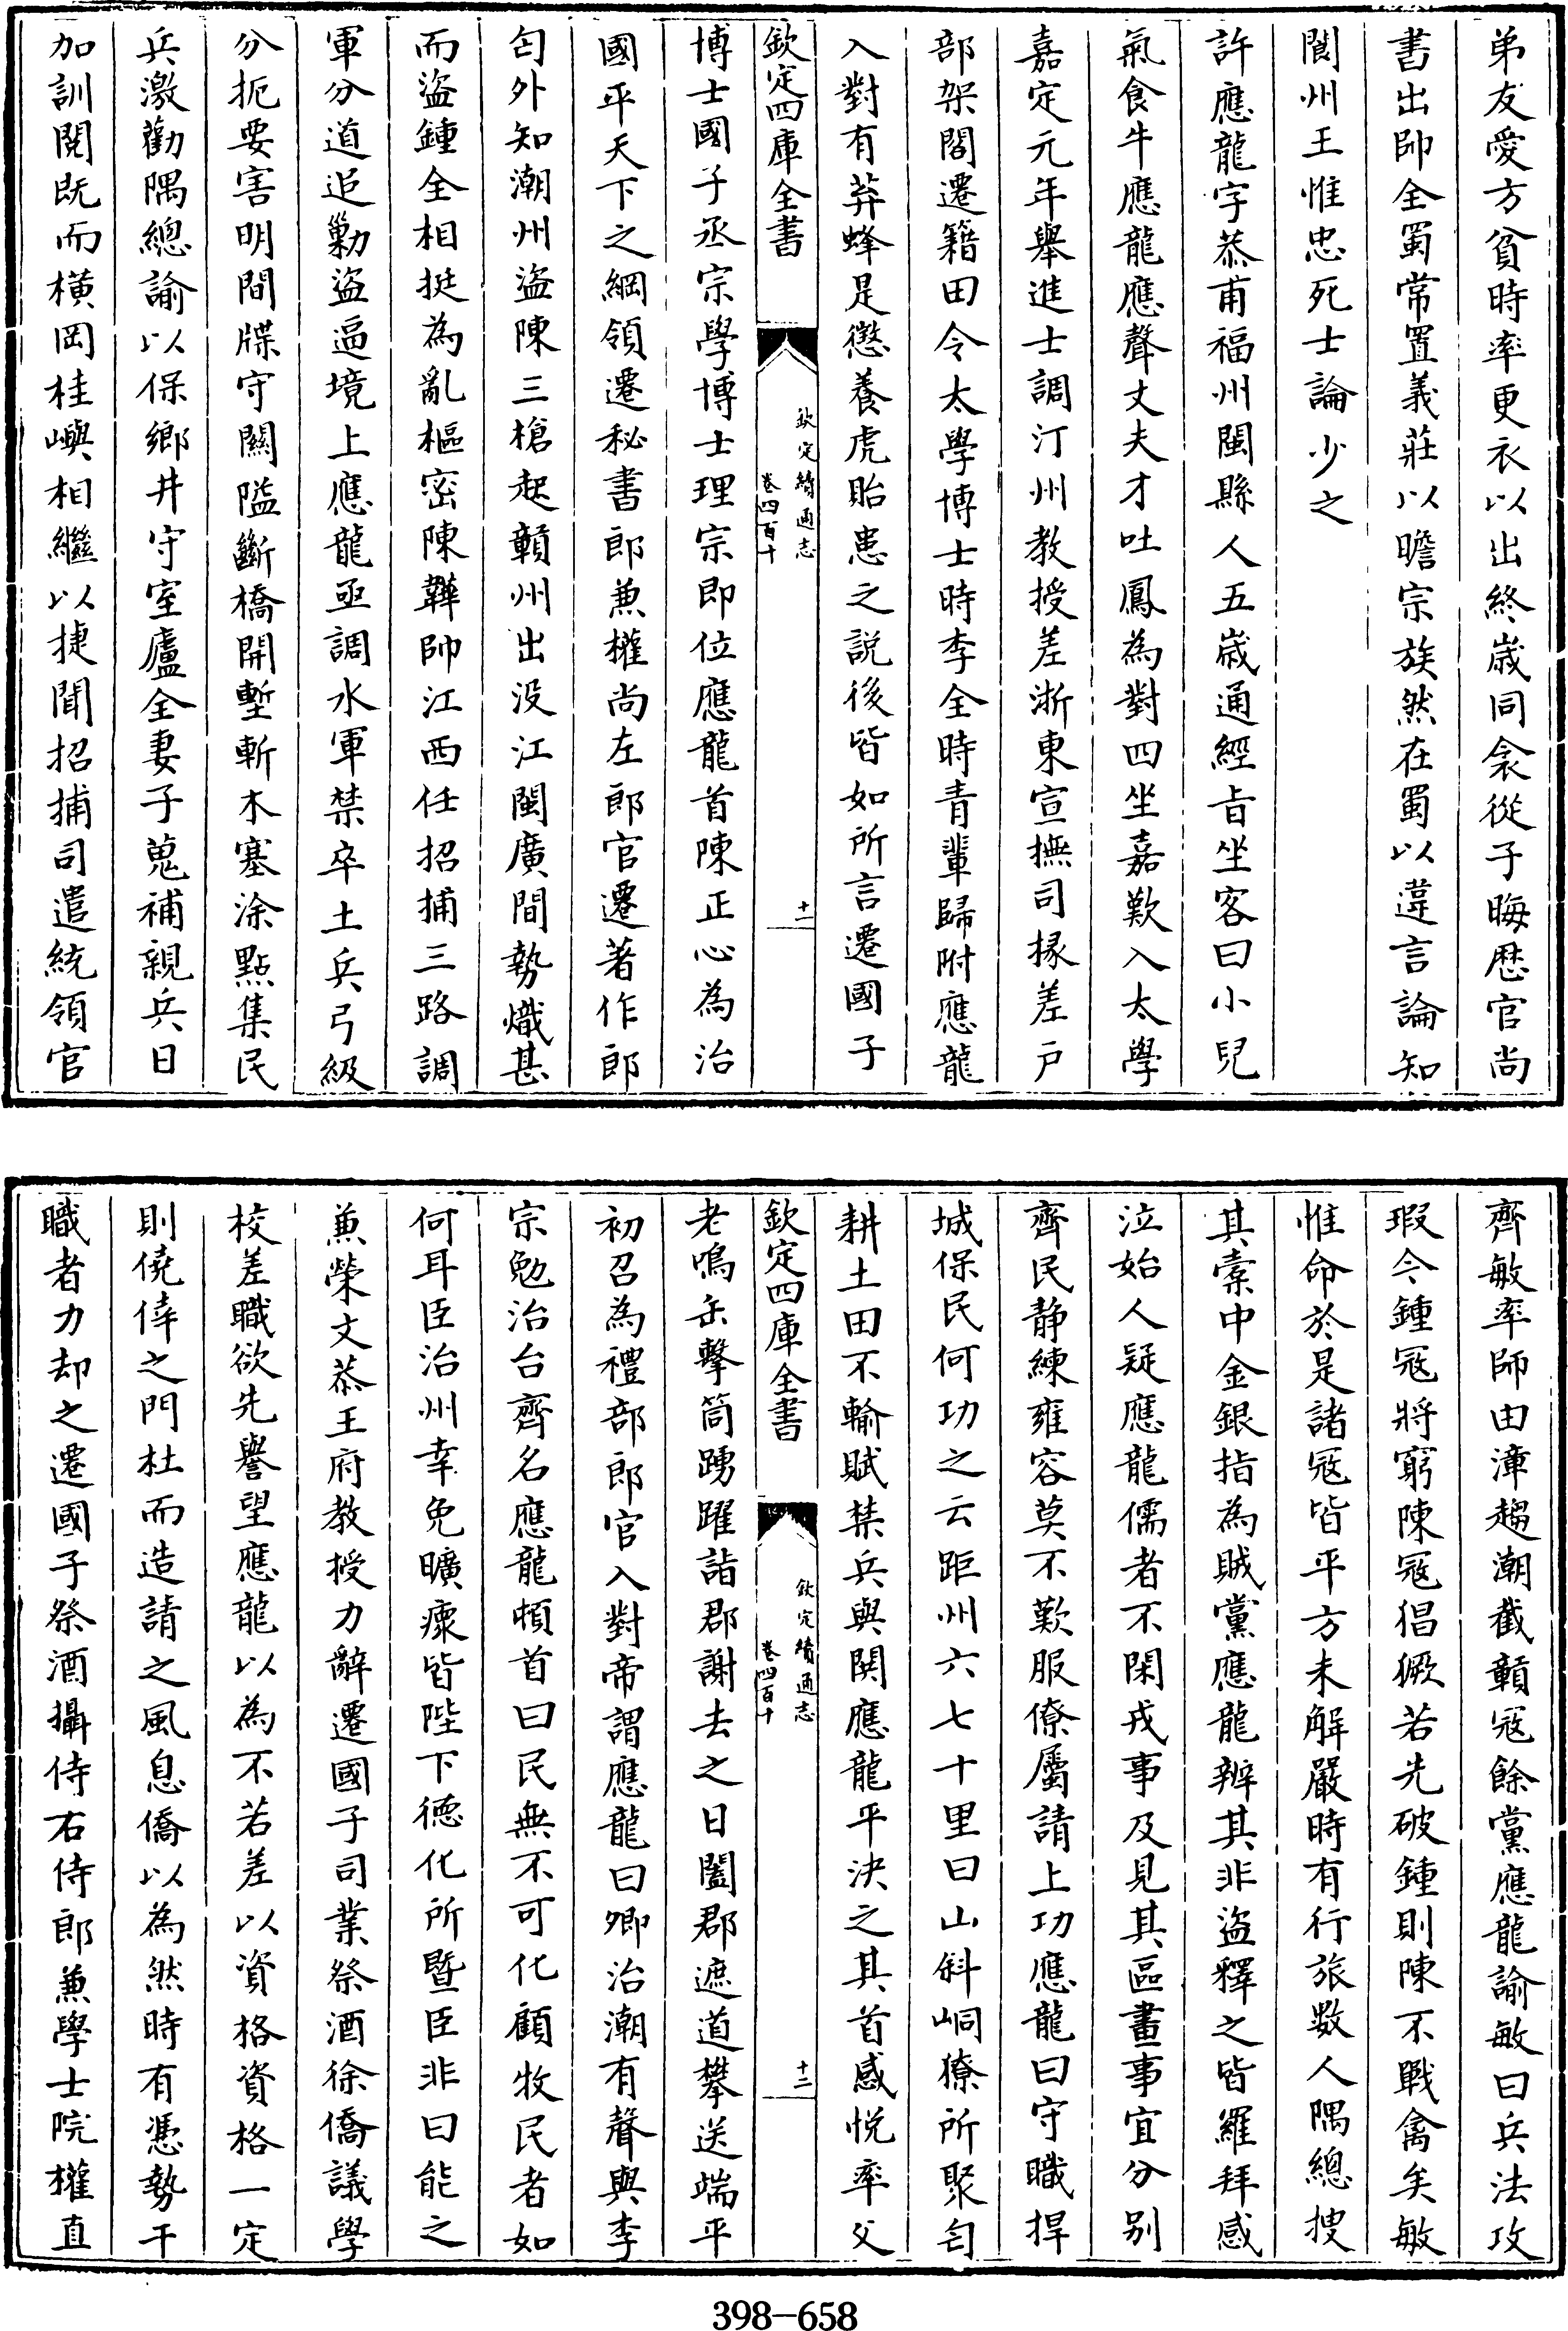 弟友愛方貧時率更衣以出終歲同衾從子晦歴官尚
書出帥全蜀常置義莊以瞻宗族然在蜀以違言論知
閬州王惟忠死士論少之
許應龍字恭甫福州閩縣人五歲通經旨坐客曰小兒
氣食牛應龍應聲丈夫才吐鳳為對四坐嘉歎入太學
嘉定元年舉進士調汀州教授差浙東宣撫司掾差户
部架閣遷籍田令太學博士時李全時青輩歸附應龍
入對有莽蜂是懲養虎貽患之説後皆如所言遷國子
欽定四庫全書
欽定續通志
卷四百十
十一
博士國子丞宗學博士理宗即位應龍首陳正心為治
國平天下之綱領遷秘書郎兼權尚左郎官遷著作郎
匄外知潮州盜陳三槍起贛州出没江閩廣間勢熾甚
而盜鍾全相挺為亂樞密陳韡帥江西任招捕三路調
軍分道追勦盜逼境上應龍亟調水軍禁卒土兵弓級
分扼要害明間牒守關隘斷橋開塹斬木塞涂點集民
兵激勸隅總諭以保鄉井守室廬全妻子蒐補親兵日
加訓閲既而横岡桂嶼相繼以捷聞招捕司遣統領官
齊敏率師由漳趨潮截贛冦餘黨應龍諭敏曰兵法攻
瑕今鍾冦將窮陳冦猖獗若先破鍾則陳不戰禽矣敏
惟命於是諸冦皆平方未解嚴時有行旅數人隅總搜
其橐中金銀指為賊黨應龍辨其非盜釋之皆羅拜感
泣始人疑應龍儒者不閑戎事及見其區畫事宜分别
齊民静練雍容莫不歎服僚屬請上功應龍曰守職捍
城保民何功之云距州六七十里曰山斜峒獠所聚匄
耕土田不輸賦禁兵與閧應龍平決之其首感悦率父
欽定四庫全書
欽定續通志
卷四百十
十二
老鳴缶擊筒踴躍詣郡謝去之日闔郡遮道攀送端平
初召為禮部郎官入對帝謂應龍曰卿治潮有聲與李
宗勉治台齊名應龍頓首曰民無不可化顧牧民者如
何耳臣治州幸免曠瘝皆陛下德化所暨臣非曰能之
兼榮文恭王府教授力辭遷國子司業祭酒徐僑議學
校差職欲先譽望應龍以為不若差以資格資格一定
則僥倖之門杜而造請之風息僑以為然時有憑勢干
職者力却之遷國子祭酒攝侍右侍郎兼學士院權直
398-658